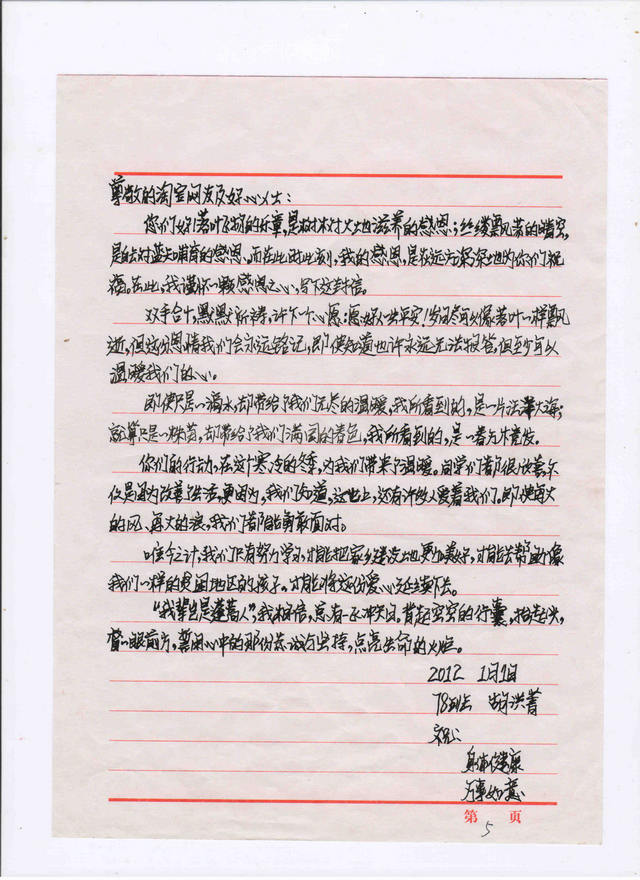 尊敬的淘宝网友及好心人士:
您们好!落叶飞舞的乐章,是树木对大地滋养的感恩;丝缕飘荡的晴空,
是白云对蓝天哺育的感恩。而在此时此刻,我的感恩,是在远方深深地为你们祝
福。在此,我谨怀一颗感恩之心,写下这封信。
双手合十,默默祈祷,许下一个心愿:愿好人一生平安!岁月终可以像落叶一样飘
逝,但这份恩情我们会永远铭记,即使知道也许永远无法报答,但至少可以
温暖我们的心。
即使只是一滴水,却带给了我们无尽的温暖,我所看到的,是一片汪洋大海;
就算只是一株苗,却带给了我们满园的春色,我所看到的,是一春万木竞发。
你们的行动,在这个寒冷的冬季,为我们带来了温暖。同学们都很改善不
仅是因为改善了生活,更因为,我们知道,这世上,还有许多人爱着我们。即使再大
的风、再大的浪,我们都能勇敢面对。
唯今之计,我们只有努力学习,才能把家乡建设地更加美好,才能去帮助像
我们一样的贫困地区的孩子。才能将这份爱心延续下去。
"我辈岂是蓬蒿人",我相信,总有一天冲天日。背起空空的行囊,抬起头,
瞥一眼前方,要用心中的那份赤诚与坚持,点亮生命的火炬。
2012 1月1日
78班 胡洪菁
祝
身体健康
万事如意
第 5 页